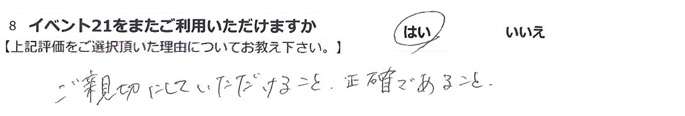 8 イベント21をまたご利用いただけますか はい いいえ
【上記評価をご選択頂いた理由についてお教え下さい。】
ご親切にしていただけること、正確であること、